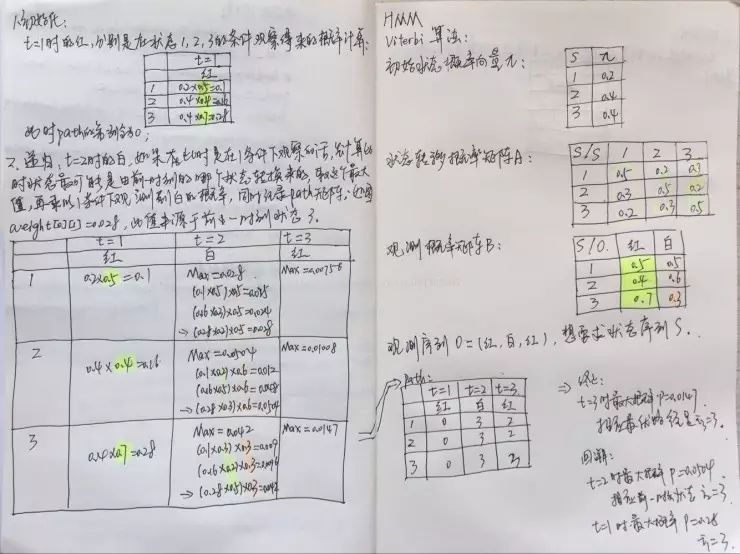 1.初始化:
t=1时的红,分别是在状态1,2,3的条件观察得来的概率计算:
t=1
红
1 0.2×0.5=0.1
2 0.4×0.4=0.16
3 0.4×0.7=0.28
此时path的第一列全为0;
2、递归,t=2时的白,如果在t时是在1条件下观察的话,
时状态最可能是由前一时刻的哪个状态转换来的,取这个最大
值,再乘以1条件下观测到白的概率,同时记录path矩阵,
weight[0][1]=0.028,此值来源于前一时刻状态3.
t=1 t=2 t=3
红 白 红
1 0.2×0.5=0.1 Max=0.028 Max=0.00756
(0.1×0.5)×0.5=0.025
(0.16×0.3)×0.5=0.024
→(0.28×0.2)×0.5=0.028
2 0.4×0.4=0.16 Max=0.0504 Max=0.01008
(0.1×0.2)×0.6=0.012
(0.16×0.5)×0.6=0.048
→(0.28×0.3)×0.6=0.0504
3 0.4×0.7=0.28 Max=0.042 Max=0.0147
(0.1×0.3)×0.3=0.009
(0.16×0.2)×0.3=0.0096
→(0.28×0.5)×0.3=0.042
HMM
Viterbi算法:
初始状态概率向量π:
S π
1 0.2
2 0.4
3 0.4
状态转移概率矩阵A:
S/S 1 2 3
1 0.5 0.2 0.3
2 0.3 0.5 0.2
3 0.2 0.3 0.5
观测概率矩阵B:
S/O 红 白
1 0.5 0.5
2 0.4 0.6
3 0.7 0.3
观测序列O=(红,白,红),想要求状态序列S.
path:
t=1 t=2 t=3
红 白 红
1 0 3 2
2 0 3 2
3 0 3 3
⇒ 终止:
t=3时最大概率P=0.0147
指最优路径是i₃=3.
回溯:
t=2时最大概率P=0.0504
指前一时刻状态i₂=3
t=1时最大概率P=0.28
i₁=3.